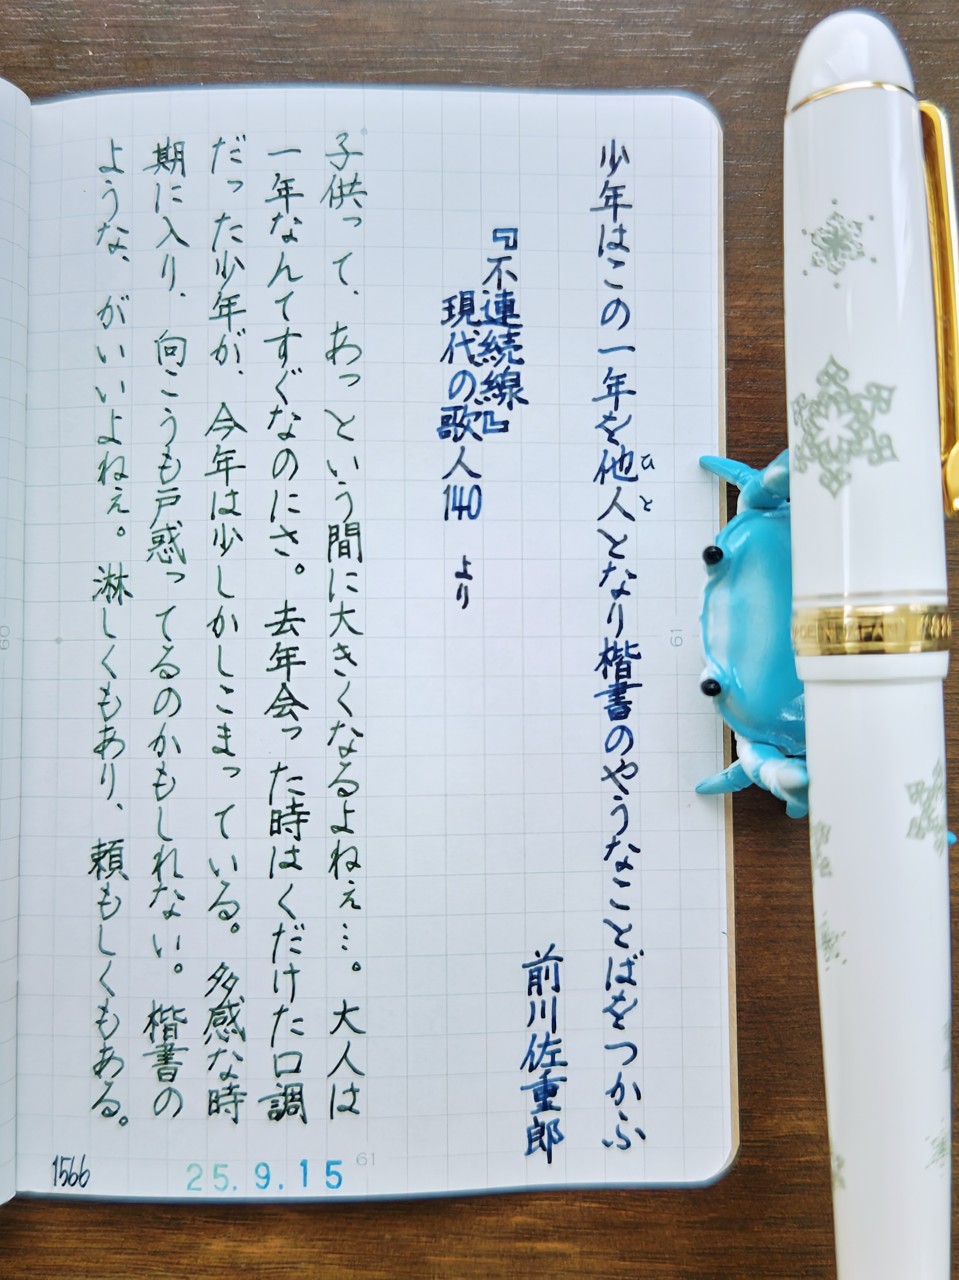 少年はこの一年を他人となり楷書のやうなことばをつかふ
ひと
前川佐重郎
『不連続線』
現代の歌人140 より
子供って、あっという間に大きくなるよねぇ…。大人は
一年なんてすぐなのにさ。去年会った時はくだけた口調
だった少年が、今年は少しかしこまっている。多感な時
期に入り、向こうも戸惑ってるのかもしれない。楷書の
ような、がいいよねぇ。淋しくもあり、頼もしくもある。
1566
25.9.15
61
61
60